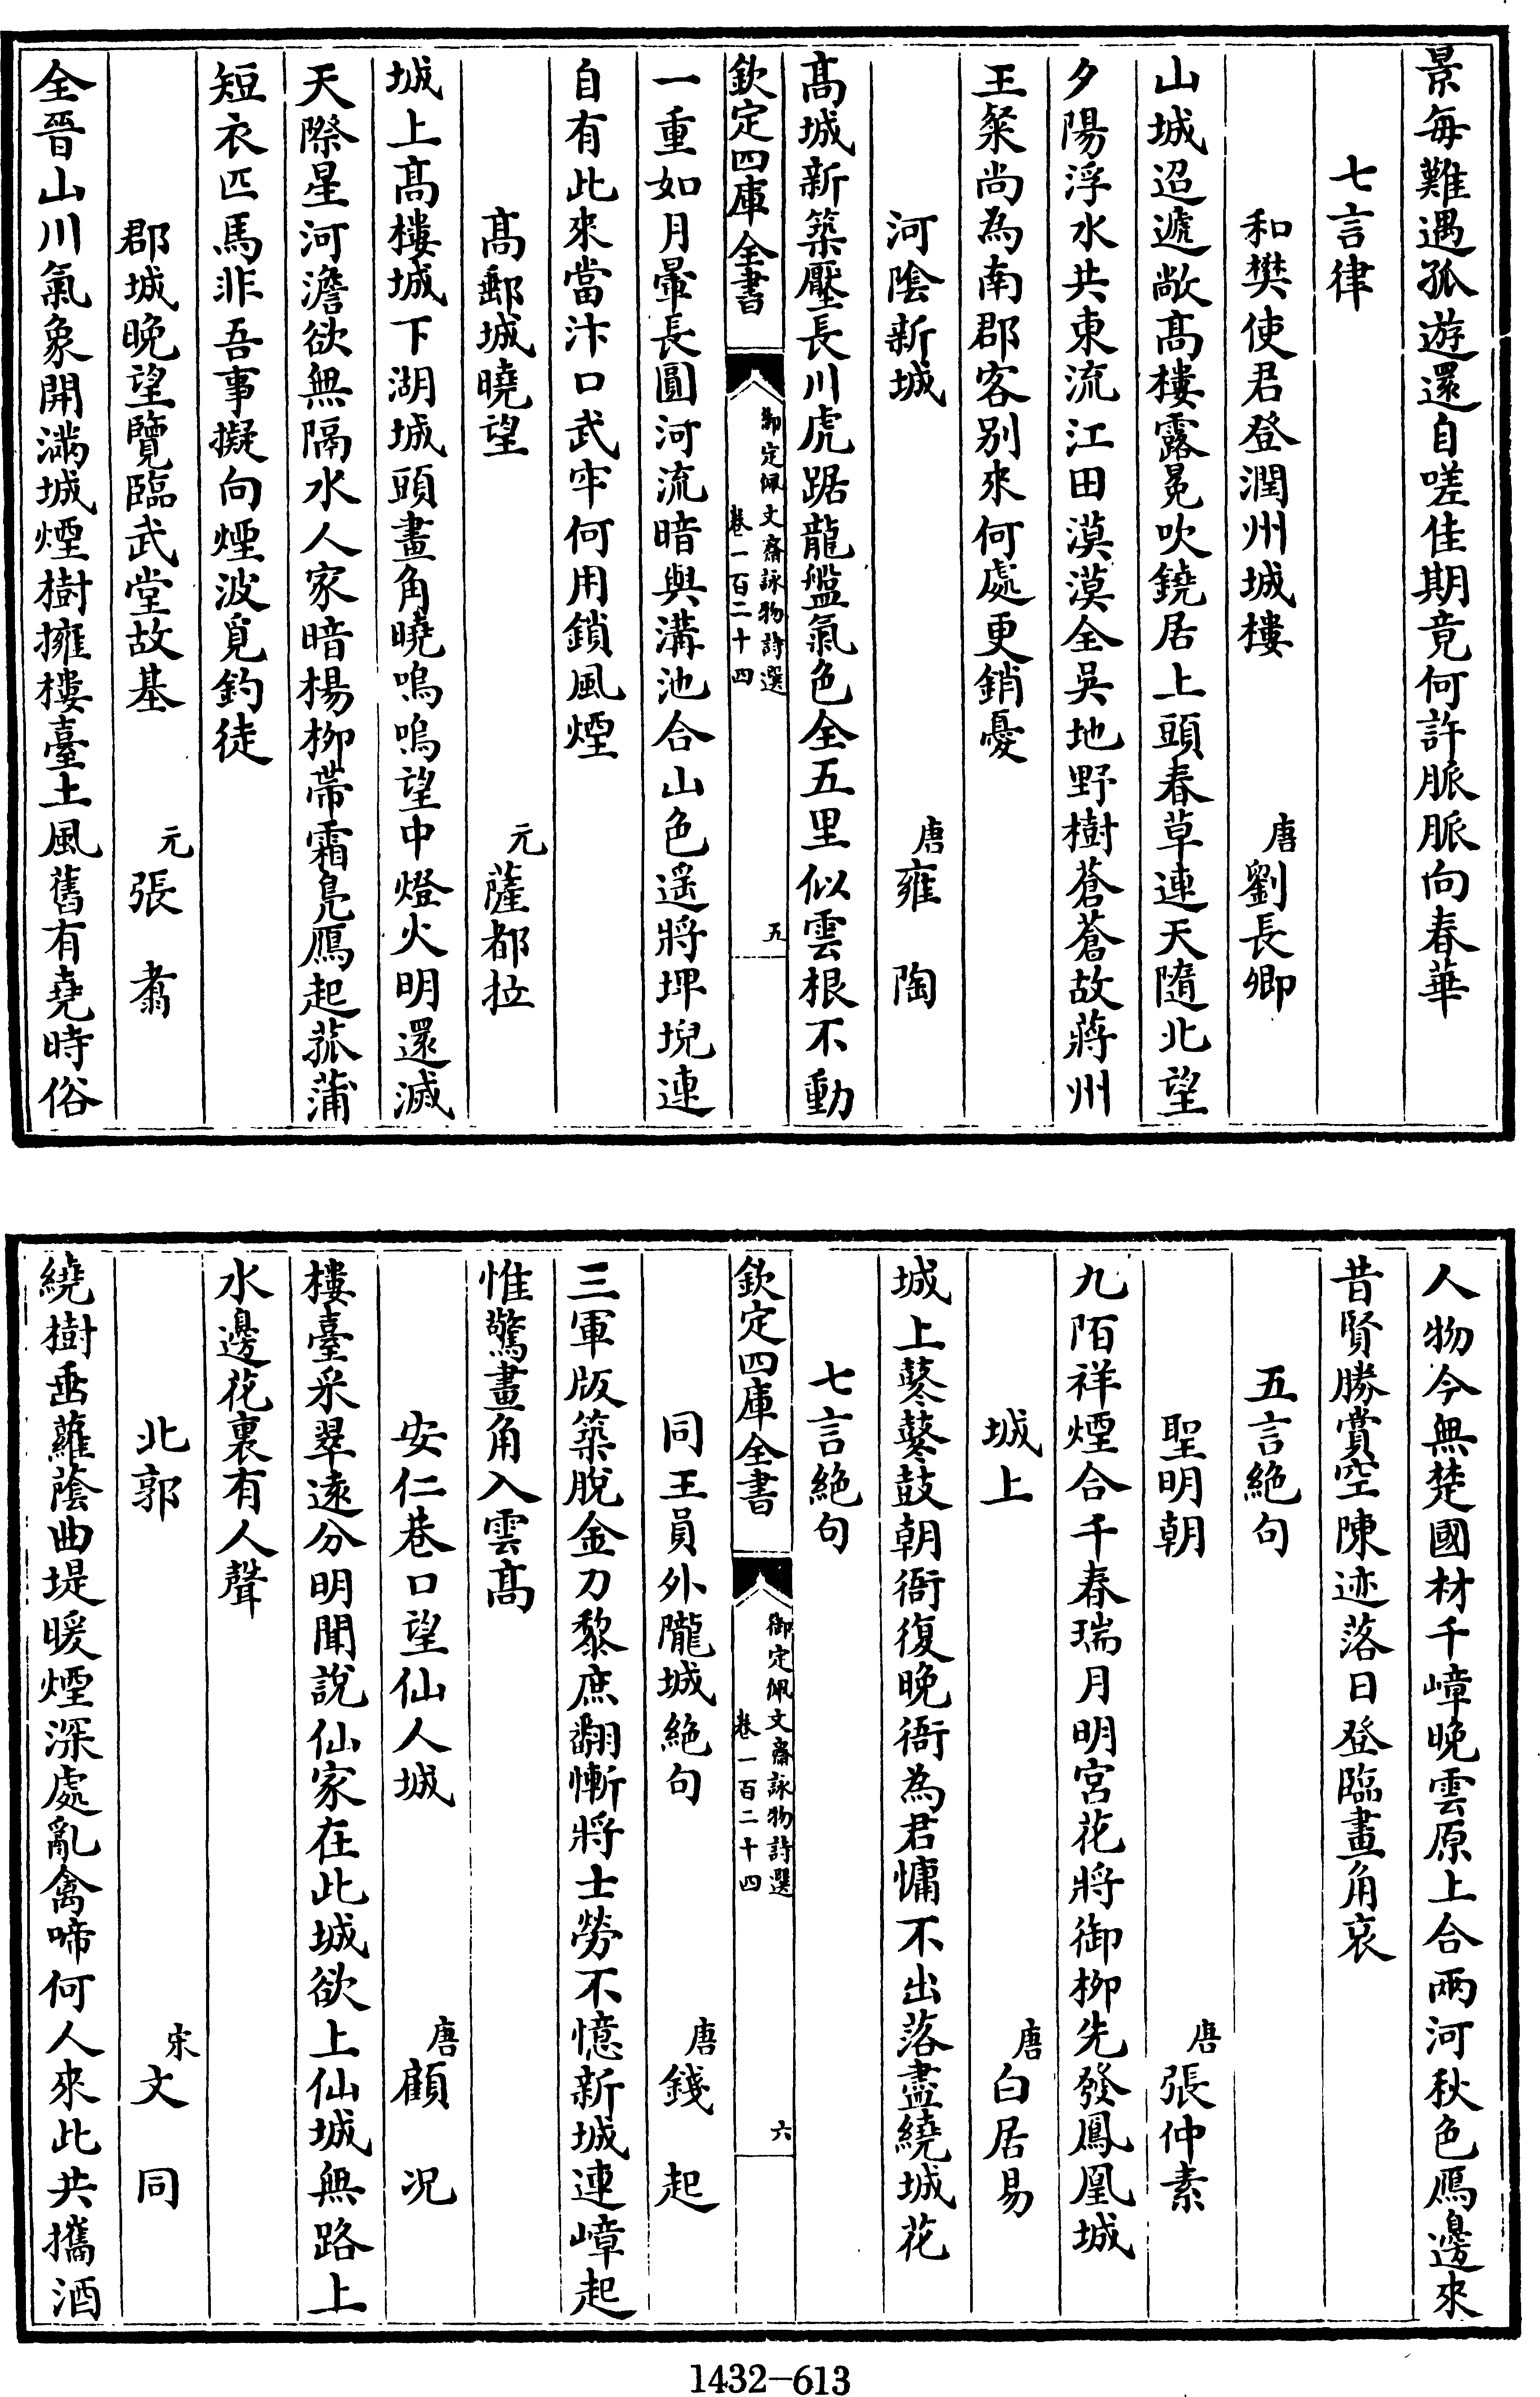 景每難遇孤遊還自嗟佳期竟何許脈脈向春華
七言律
和樊使君登潤州城樓 唐劉長卿
山城迢遞敞高樓露冕吹鐃居上頭春草連天隨北望
夕陽浮水共東流江田漠漠全吳地野樹蒼蒼故蔣州
王粲尚為南郡客別來何處更銷憂
河陰新城 唐雍陶
髙城新築壓長川虎踞龍盤氣色全五里似雲根不動
欽定四庫全書 御定佩文齋詠物詩選 卷一百二十四 五
一重如月暈長圓河流暗與溝池合山色遥將埤堄連
自有此來當汴口武牢何用鎖風煙
髙郵城曉望 元薩都拉
城上髙樓城下湖城頭畫角曉嗚嗚望中燈火明還滅
天際星河澹欲無隔水人家暗楊柳帶霜鳧鴈起菰蒲
短衣匹馬非吾事擬向煙波覓釣徒
郡城晚望覽臨武堂故基 元張翥
全晉山川氣象開滿城煙樹擁樓臺土風舊有堯時俗
人物今無楚國材千嶂晚雲原上合兩河秋色鴈邊來
昔賢勝賞空陳迹落日登臨畫角哀
五言絶句
聖明朝 唐張仲素
九陌祥煙合千春瑞月明宮花將御柳先發鳳凰城
城上 唐白居易
城上鼕鼕鼓朝衙復晚衙為君慵不出落盡繞城花
七言絶句
欽定四庫全書 御定佩文齋詠物詩選 卷一百二十四 六
同王員外隴城絶句 唐錢起
三軍版築脫金刀黎庶翻慚將士勞不憶新城連嶂起
惟驚畫角入雲髙
安仁巷口望仙人城 唐顧况
樓臺采翠逺分明聞說仙家在此城欲上仙城無路上
水邊花裏有人聲
北郭 宋文同
繞樹垂蘿蔭曲堤暖煙深處亂禽啼何人來此共攜酒
1432-613